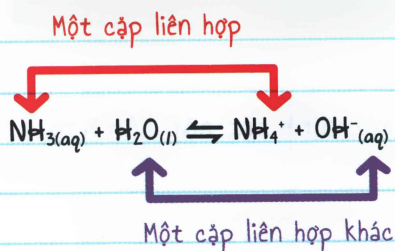 Một cặp liên hợp
NH₃(aq) + H₂O(l) ⇌ NH₄⁺ + OH⁻(aq)
Một cặp liên hợp khác